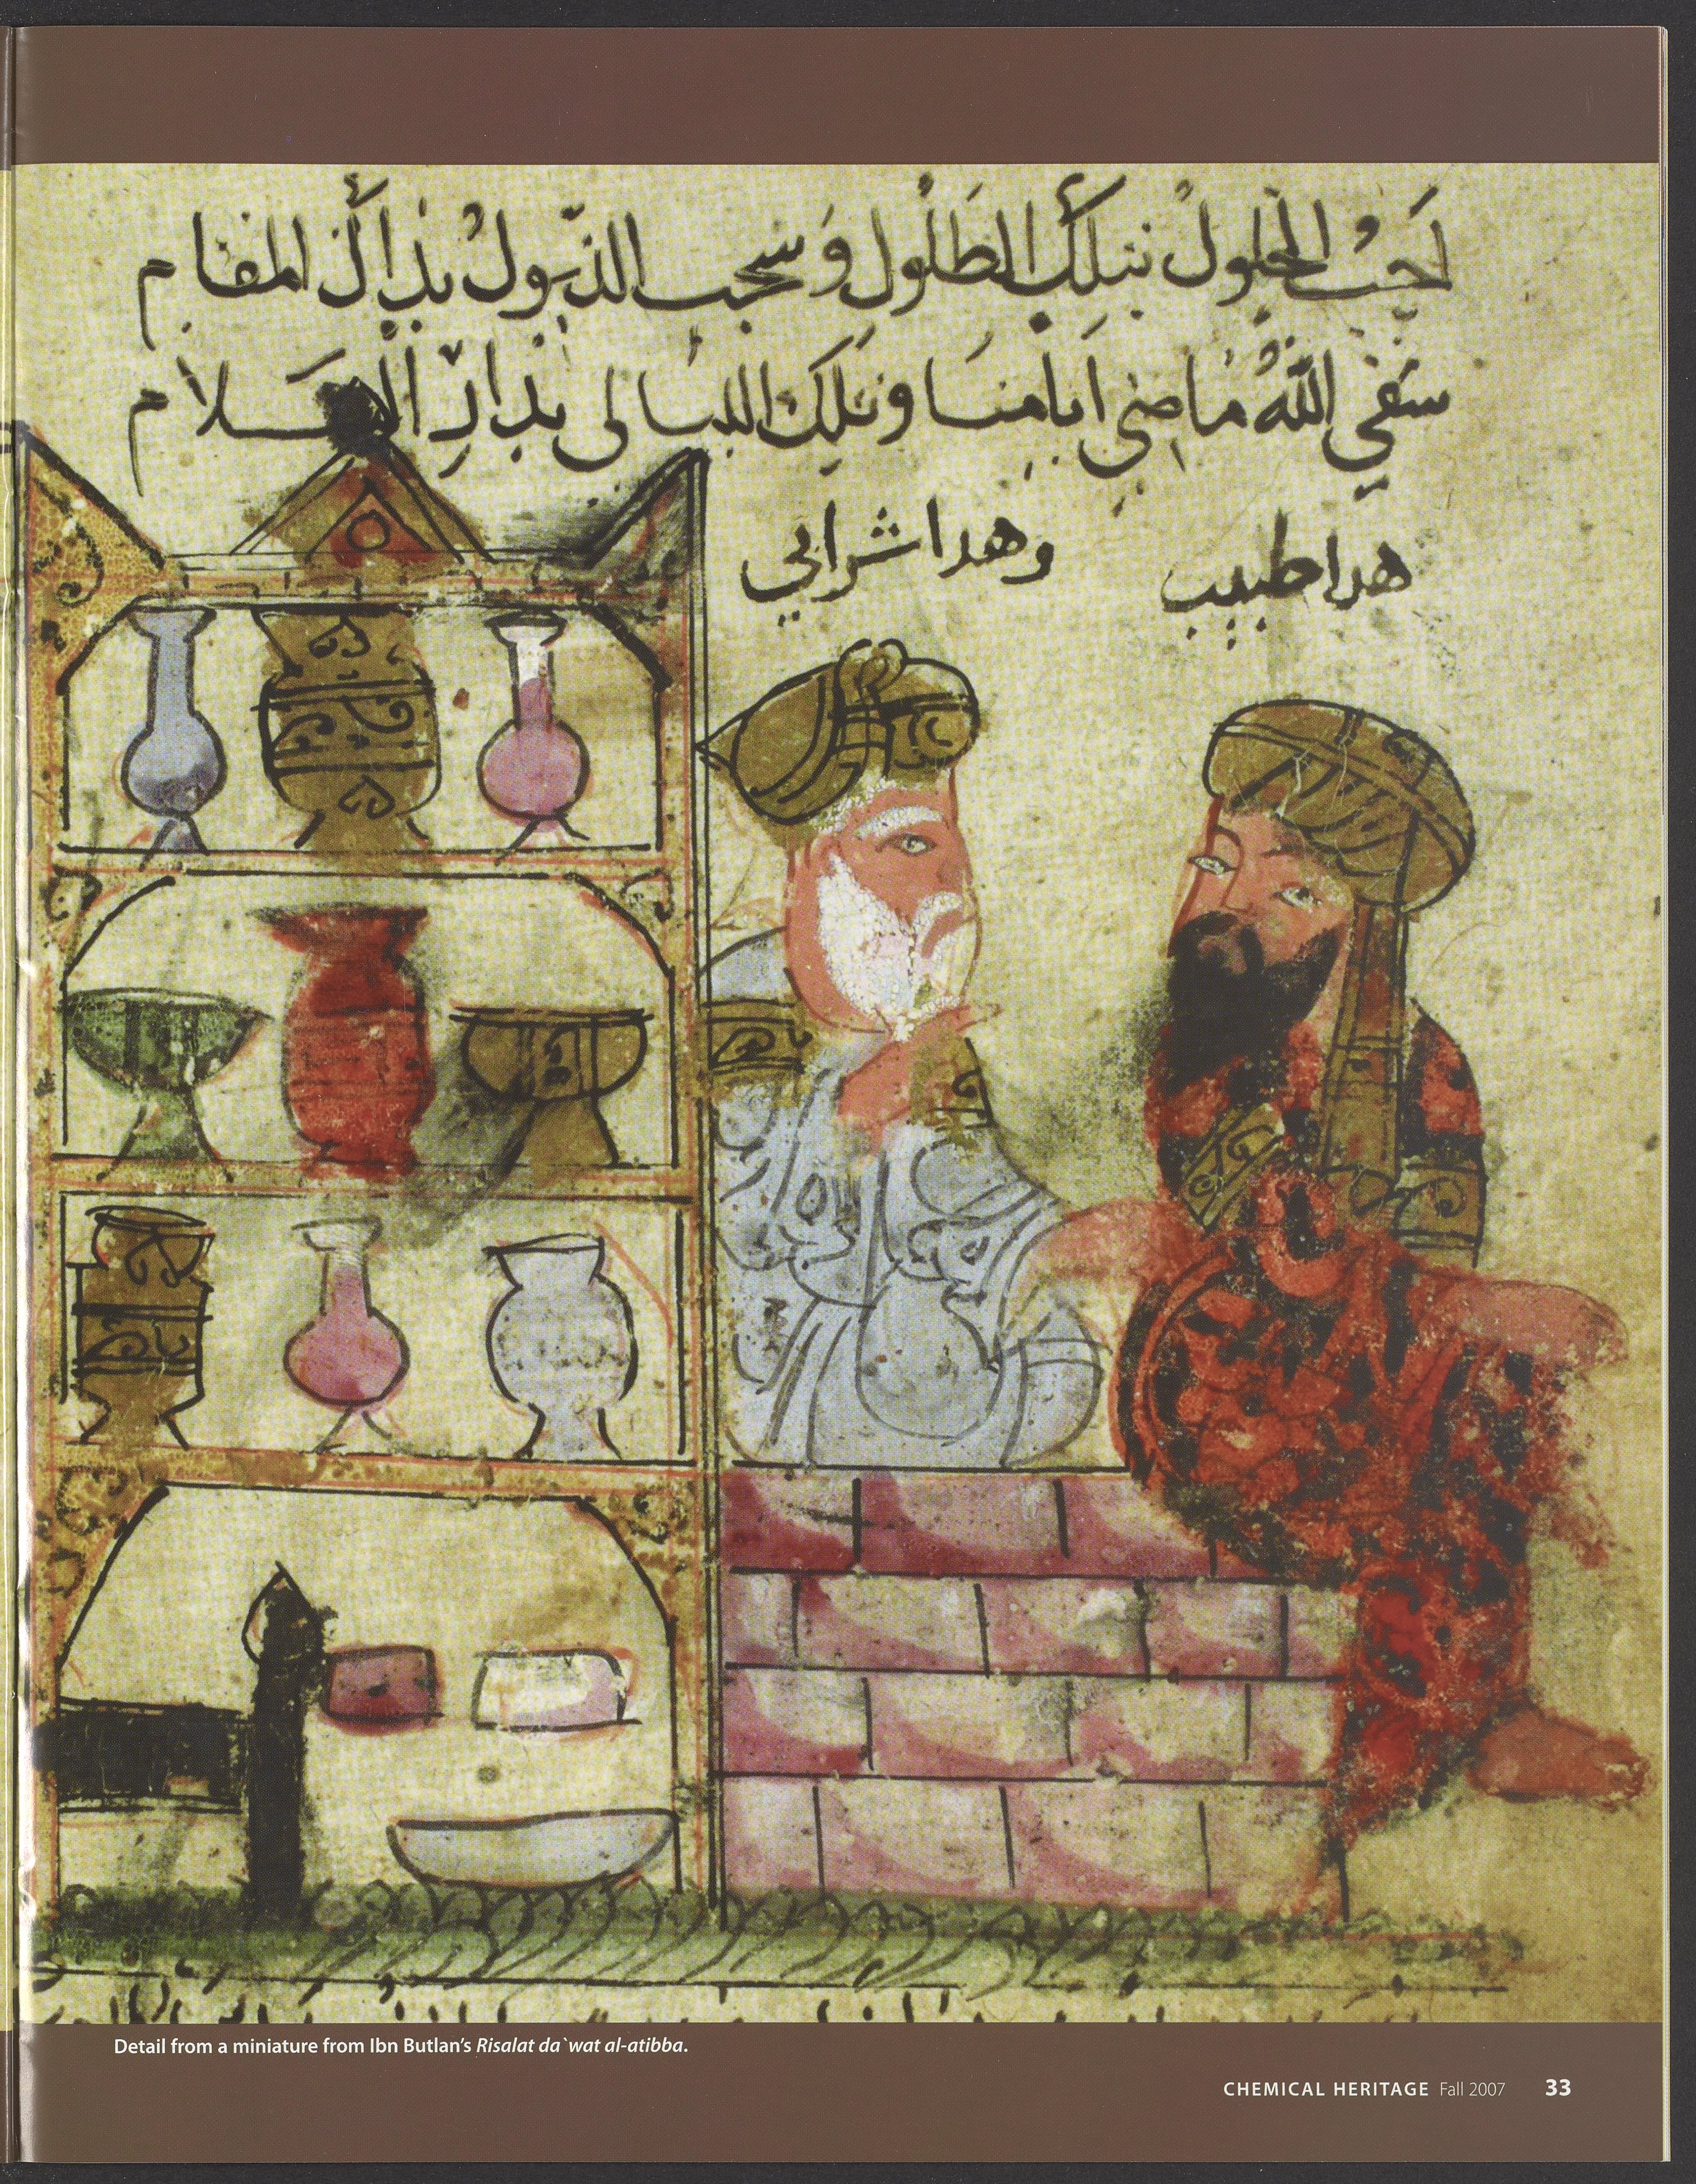 احب الحلول بتلك الطلول وسحب الذيول بذاك المقام
سقى الله ماضي ايامنا وتلك الليالي بدار السلام
هدا طبيب
وهدا شرابي
Detail from a miniature from Ibn Butlan's Risalat da`wat al-atibba.
CHEMICAL HERITAGE Fall 2007 33